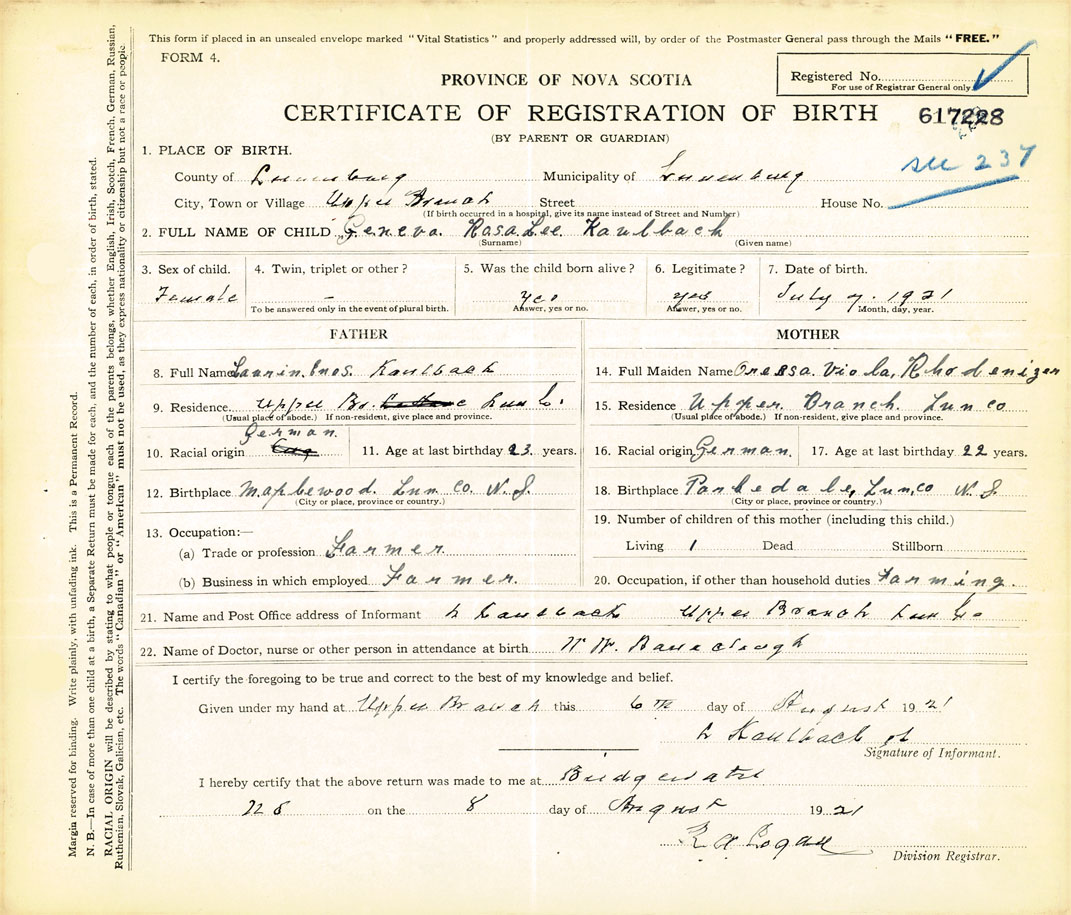 This form if placed in an unsealed envelope marked "Vital Statistics" and properly addressed will, by order of the Postmaster General pass through the Mails "FREE."
FORM 4.
PROVINCE OF NOVA SCOTIA
Registered No.
For use of Registrar General only.
CERTIFICATE OF REGISTRATION OF BIRTH
617228
(BY PARENT OR GUARDIAN)
see 237
1. PLACE OF BIRTH.
County of Lunenburg Municipality of Lunenburg
City, Town or Village Upper Branch Street House No.
(If birth occurred in a hospital, give its name instead of Street and Number)
2. FULL NAME OF CHILD Geneva. RosaLee. Kaulback
(Surname) (Given name)
3. Sex of child. 4. Twin, triplet or other? 5. Was the child born alive? 6. Legitimate? 7. Date of birth.
Female – yes yes July 7. 1921
To be answered only in the event of plural birth. Answer, yes or no. Answer, yes or no. Month, day, year.
FATHER MOTHER
8. Full Name Laurin. Enos. Kaulback 14. Full Maiden Name Oressa. Viola, Rhodenizer
9. Residence Upper Br. Lun Co. 15. Residence Upper. Branch. Lun co
(Usual place of abode.) If non-resident, give place and province. (Usual place of abode.) If non-resident, give place and province.
German.
10. Racial origin 11. Age at last birthday 23 years. 16. Racial origin German. 17. Age at last birthday 22 years.
12. Birthplace Maplewood. Lun. co. N.S. 18. Birthplace Parkedale, Lun, co N.S.
(City or place, province or country.) (City or place, province or country.)
19. Number of children of this mother (including this child.)
13. Occupation:—
(a) Trade or profession Farmer Living 1 Dead Stillborn
(b) Business in which employed Farmer. 20. Occupation, if other than household duties Farming.
21. Name and Post Office address of Informant L Kaulback Upper Branch Lun Co
22. Name of Doctor, nurse or other person in attendance at birth
I certify the foregoing to be true and correct to the best of my knowledge and belief.
Given under my hand at Upper Branch this 6th day of August 1921
L Kaulback
Signature of Informant.
I hereby certify that the above return was made to me at Bridgewater
228 on the 8 day of August 1921
Division Registrar.
Margin reserved for binding. Write plainly, with unfading ink. This is a Permanent Record.
N. B.—In case of more than one child at a birth, a Separate Return must be made for each, and the number of each, in order of birth, stated.
RACIAL ORIGIN will be described by stating to what people or tongue each of the parents belongs, whether English, Irish, Scotch, French, German, Russian,
Ruthenian, Slovak, Galician, etc. The words "Canadian" or "American" must not be used, as they express nationality or citizenship but not a race or people